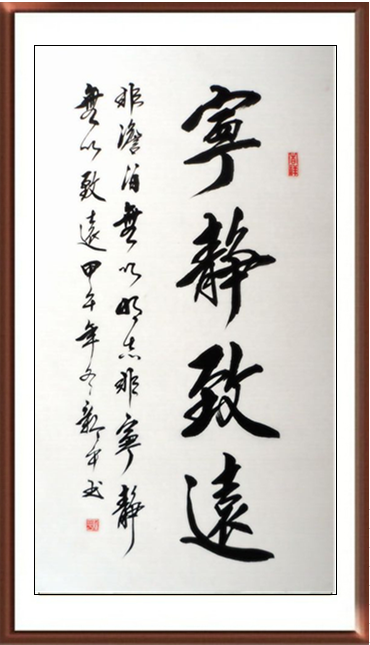 寧靜致遠
非澹泊無以明志非寧靜
無以致遠甲午年冬新平书